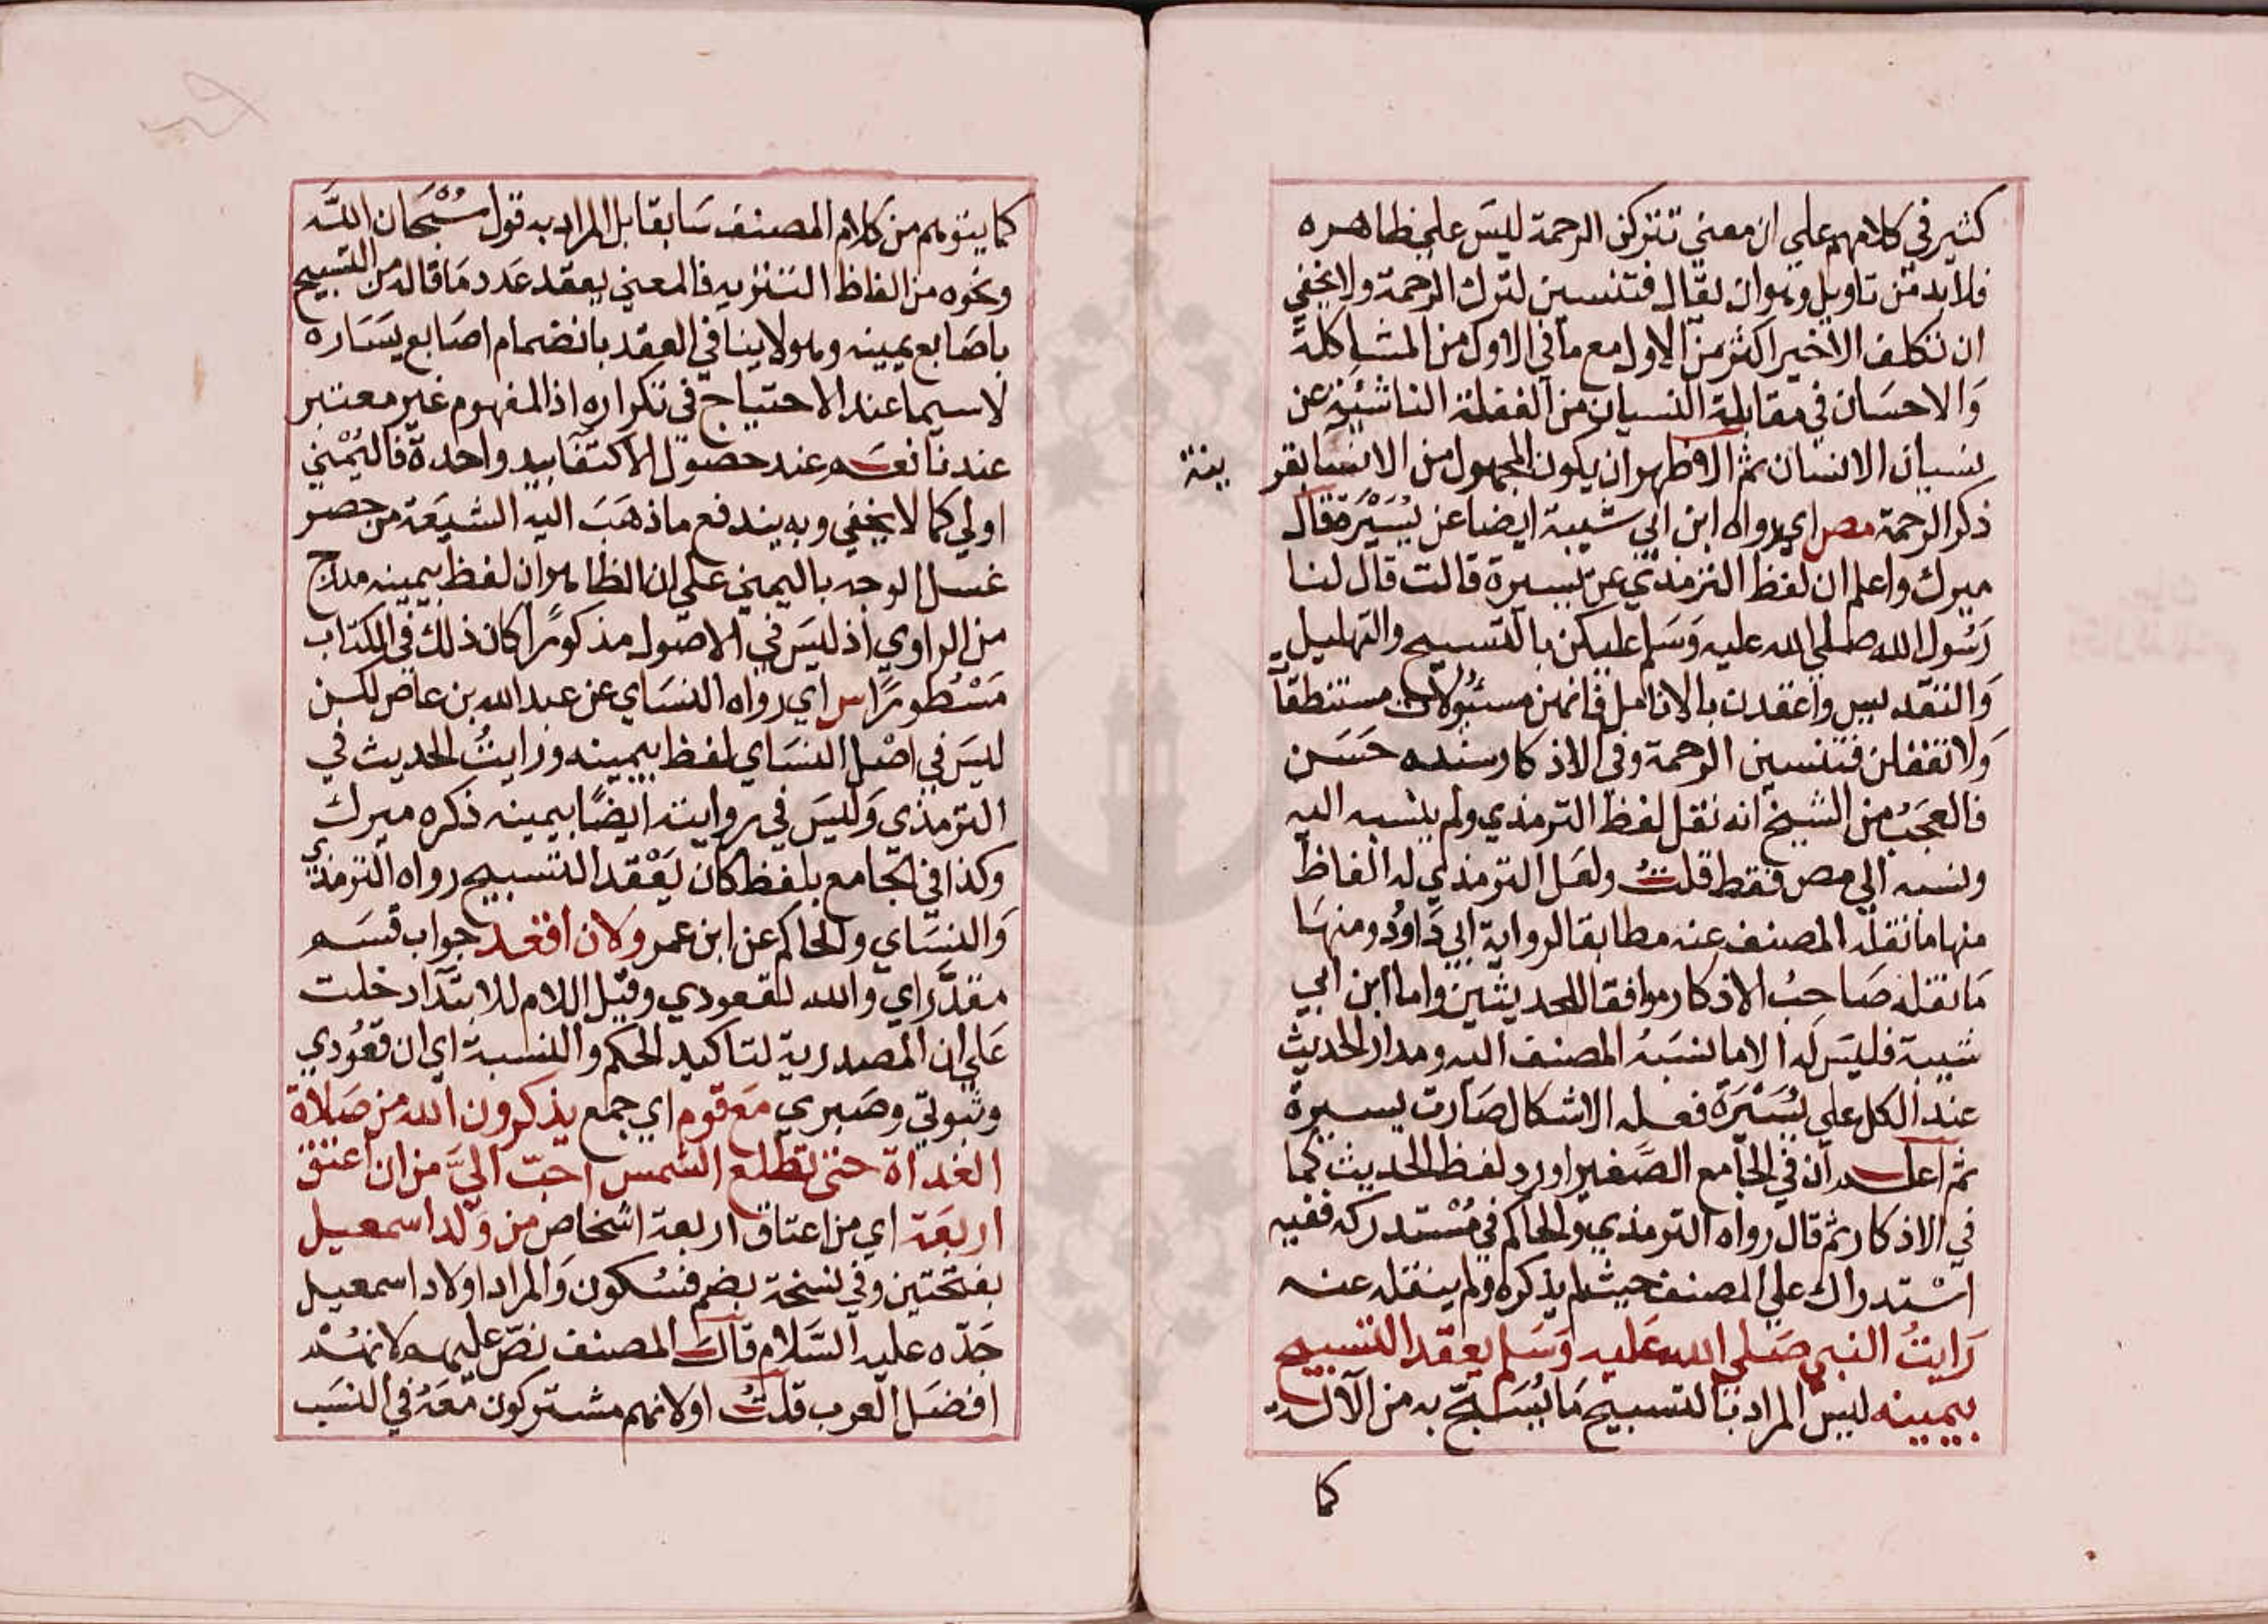 كثير في كلامهم علي ان معني تتركن الرحمة ليس علي ظاهره
فلا بد من تاويل وهو ان يقال فتنسين لترك الرحمة ولا يخفي
ان تكلف الاخير اكثر من الاول مع ما في الاول من المشاكلة
والاحسان في مقابلة النسيان من الغفلة الناشئة عن
نسيان الانسان ثم الاظهر ان يكون المجهول من الانسا بقر ينة
ذكر الرحمة مص اي رواه ابن ابي شيبة ايضا عن يسيرة قال
ميرك واعلم ان لفظ الترمذي عن يسيرة قالت قال لنا
رسول الله صلي الله عليه وسلم عليكن بالتسبيح والتهليل
والتقديس واعقدن بالانامل فانهن مسئولات مستنطقات
ولا تغفلن فتنسين الرحمة وفي الاذكار سنده حسن
فالعجب من الشيخ انه نقل لفظ الترمذي ولم ينسبه اليه
ونسبه الي مص فقط قلت ولعل الترمذي له الفاظ
منها ما نقله المصنف عنه مطابقا لرواية ابي داود ومنها
ما نقله صاحب الاذكار موافقا للحديثين واما ابن ابي
شيبة فليس له الا ما نسبه المصنف اليه ومدار الحديث
عند الكل علي يسيرة فعله الاشكال صارت يسيرة
ثم اعلم ان في الجامع الصغير اورد لفظ الحديث كما
في الاذكار ثم قال رواه الترمذي والحاكم في مستدركه ففيه
استدراك علي المصنف حيث لم يذكره ولم ينقله عنه
رايت النبي صلي الله عليه وسلم يعقد التسبيح
بيمينه ليس المراد بالتسبيح ما يسبح به من الآلة
كما
كما يتوهم من كلام المصنف سابقا بل المراد به قول سبحان الله
ونحوه من الفاظ التنزيه فالمعني يعقد عدد ما قاله من التسبيح
باصابع يمينه وهو لا ينافي العقد بانضمام اصابع يساره
لا سيما عند الاحتياج في تكراره اذ المفهوم غير معتبر
عندنا نعم عند حصول الاكتفا بيد واحدة فاليمني
اولي كما لا يخفي وبه يندفع ما ذهب اليه الشيعة من حصر
غسل الوجه باليمني علي ان الظاهر ان لفظ بيمينه مدرج
من الراوي اذ ليس في الاصول مذكورا كان ذلك في الكتاب
مسطورا س اي رواه النساي عن عبد الله بن عاص لكن
ليس في اصل النساي لفظ بيمينه ورايت الحديث في
الترمذي وليس في روايته ايضا بيمينه ذكره ميرك
وكذا في الجامع بلفظ كان يعقد التسبيح رواه الترمذي
والنساي والحاكم عن ابن عمر ولان اقعد جواب قسم
مقدر اي والله لقعودي وقيل اللام للابتدا دخلت
علي ان المصدرية لتاكيد الحكم والنسبة اي ان قعودي
وثبوتي وصبري مع قوم اي جمع يذكرون الله من صلاة
الغداة حتي تطلع الشمس احب الي من ان اعتق
اربعة اي من اعتاق اربعة اشخاص من ولد اسمعيل
بفتحتين وفي نسخة بضم فسكون والمراد اولاد اسمعيل
جده عليه السلام قال المصنف نص عليهم لانهم
افضل العرب قلت او لانهم مشتركون معه في النسب